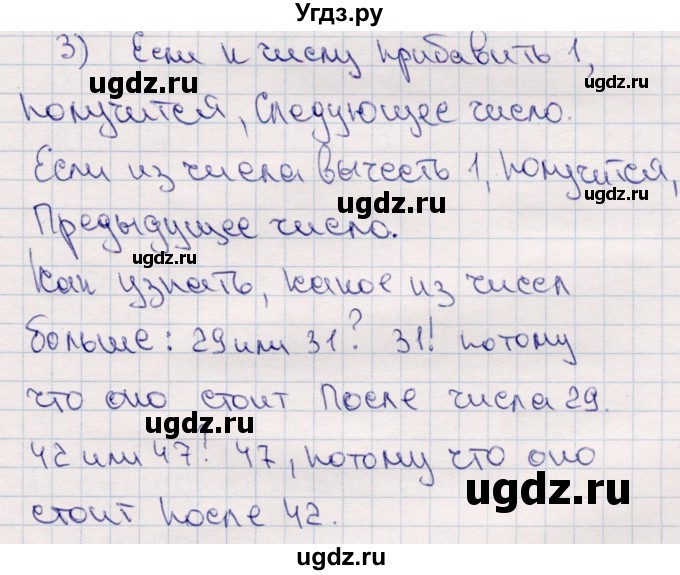 Угдз.ру
3) Если к числу прибавить 1,
получится, Следующее число.
Если из числа вычесть 1, получится,
Предыдущее число.
Как узнать, какое из чисел
больше: 29 или 31? 31! потому
что оно стоит После числа 29.
42 или 47! 47, потому что оно
стоит после 42.
ugdz.ru
ugdz.ru
ugdz.ru
ugdz.ru
ugdz.ru
ugdz.ru
ugdz.ru
ugdz.ru
ugdz.ru
ugdz.ru
ugdz.ru